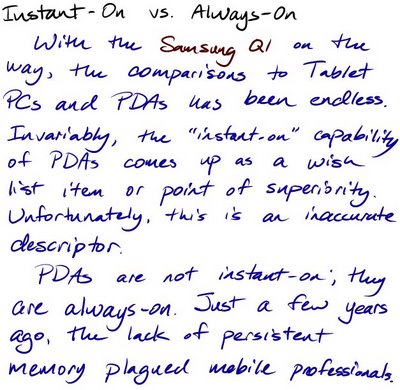 Instant-On vs. Always-On
With the Samsung Q1 on the
way, the comparisons to Tablet
PCs and PDAs has been endless.
Invariably, the "instant-on" capability
of PDAs comes up as a wish
list item or point of superiority.
Unfortunately, this is an inaccurate
descriptor.
PDAs are not instant-on; they
are always-on. Just a few years
ago, the lack of persistent
memory plagued mobile professionals.